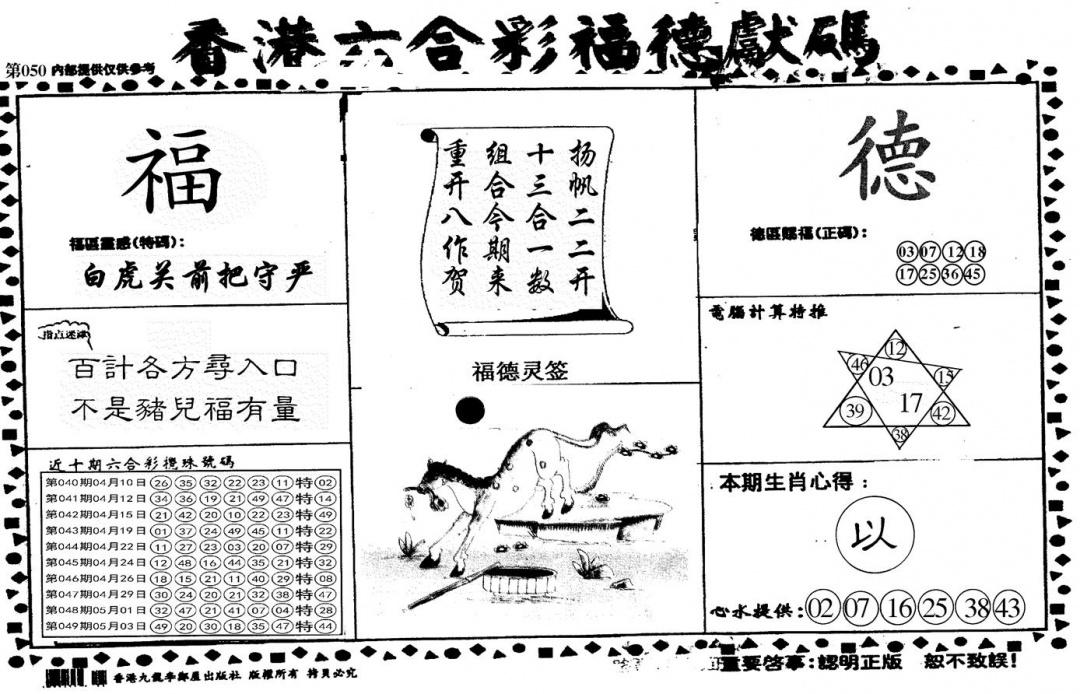 香港六合彩福德獻碼
第050 内部提供仅供参考
福
福區靈感(特碼):
白虎关前把守严
指点迷津
百計各方尋入口
不是豬兒福有量
近十期六合彩攪珠號碼
第040期04月10日 26 35 32 22 23 11 特 02
第041期04月12日 34 36 19 21 49 47 特 14
第042期04月15日 21 42 20 10 22 23 特 49
第043期04月19日 01 37 24 49 45 11 特 22
第044期04月22日 11 27 23 03 20 07 特 29
第045期04月24日 12 48 16 44 35 21 特 32
第046期04月26日 18 15 21 11 40 29 特 08
第047期04月29日 30 24 20 21 32 38 特 47
第048期05月01日 32 47 21 41 07 04 特 28
第049期05月03日 49 20 30 18 35 47 特 44
扬帆二二开
十三合一数
组合今期来
重开八作贺
福德灵签
德
德區賜福(正碼):
03 07 12 18
17 25 36 45
電腦計算特推
12
46
03
15
39
17
42
38
本期生肖心得:
以
心水提供: 02 07 16 25 38 43
重要啓事:認明正版 恕不致誤!
香港九龍李鄭屋出版社 版權所有 拷貝必究